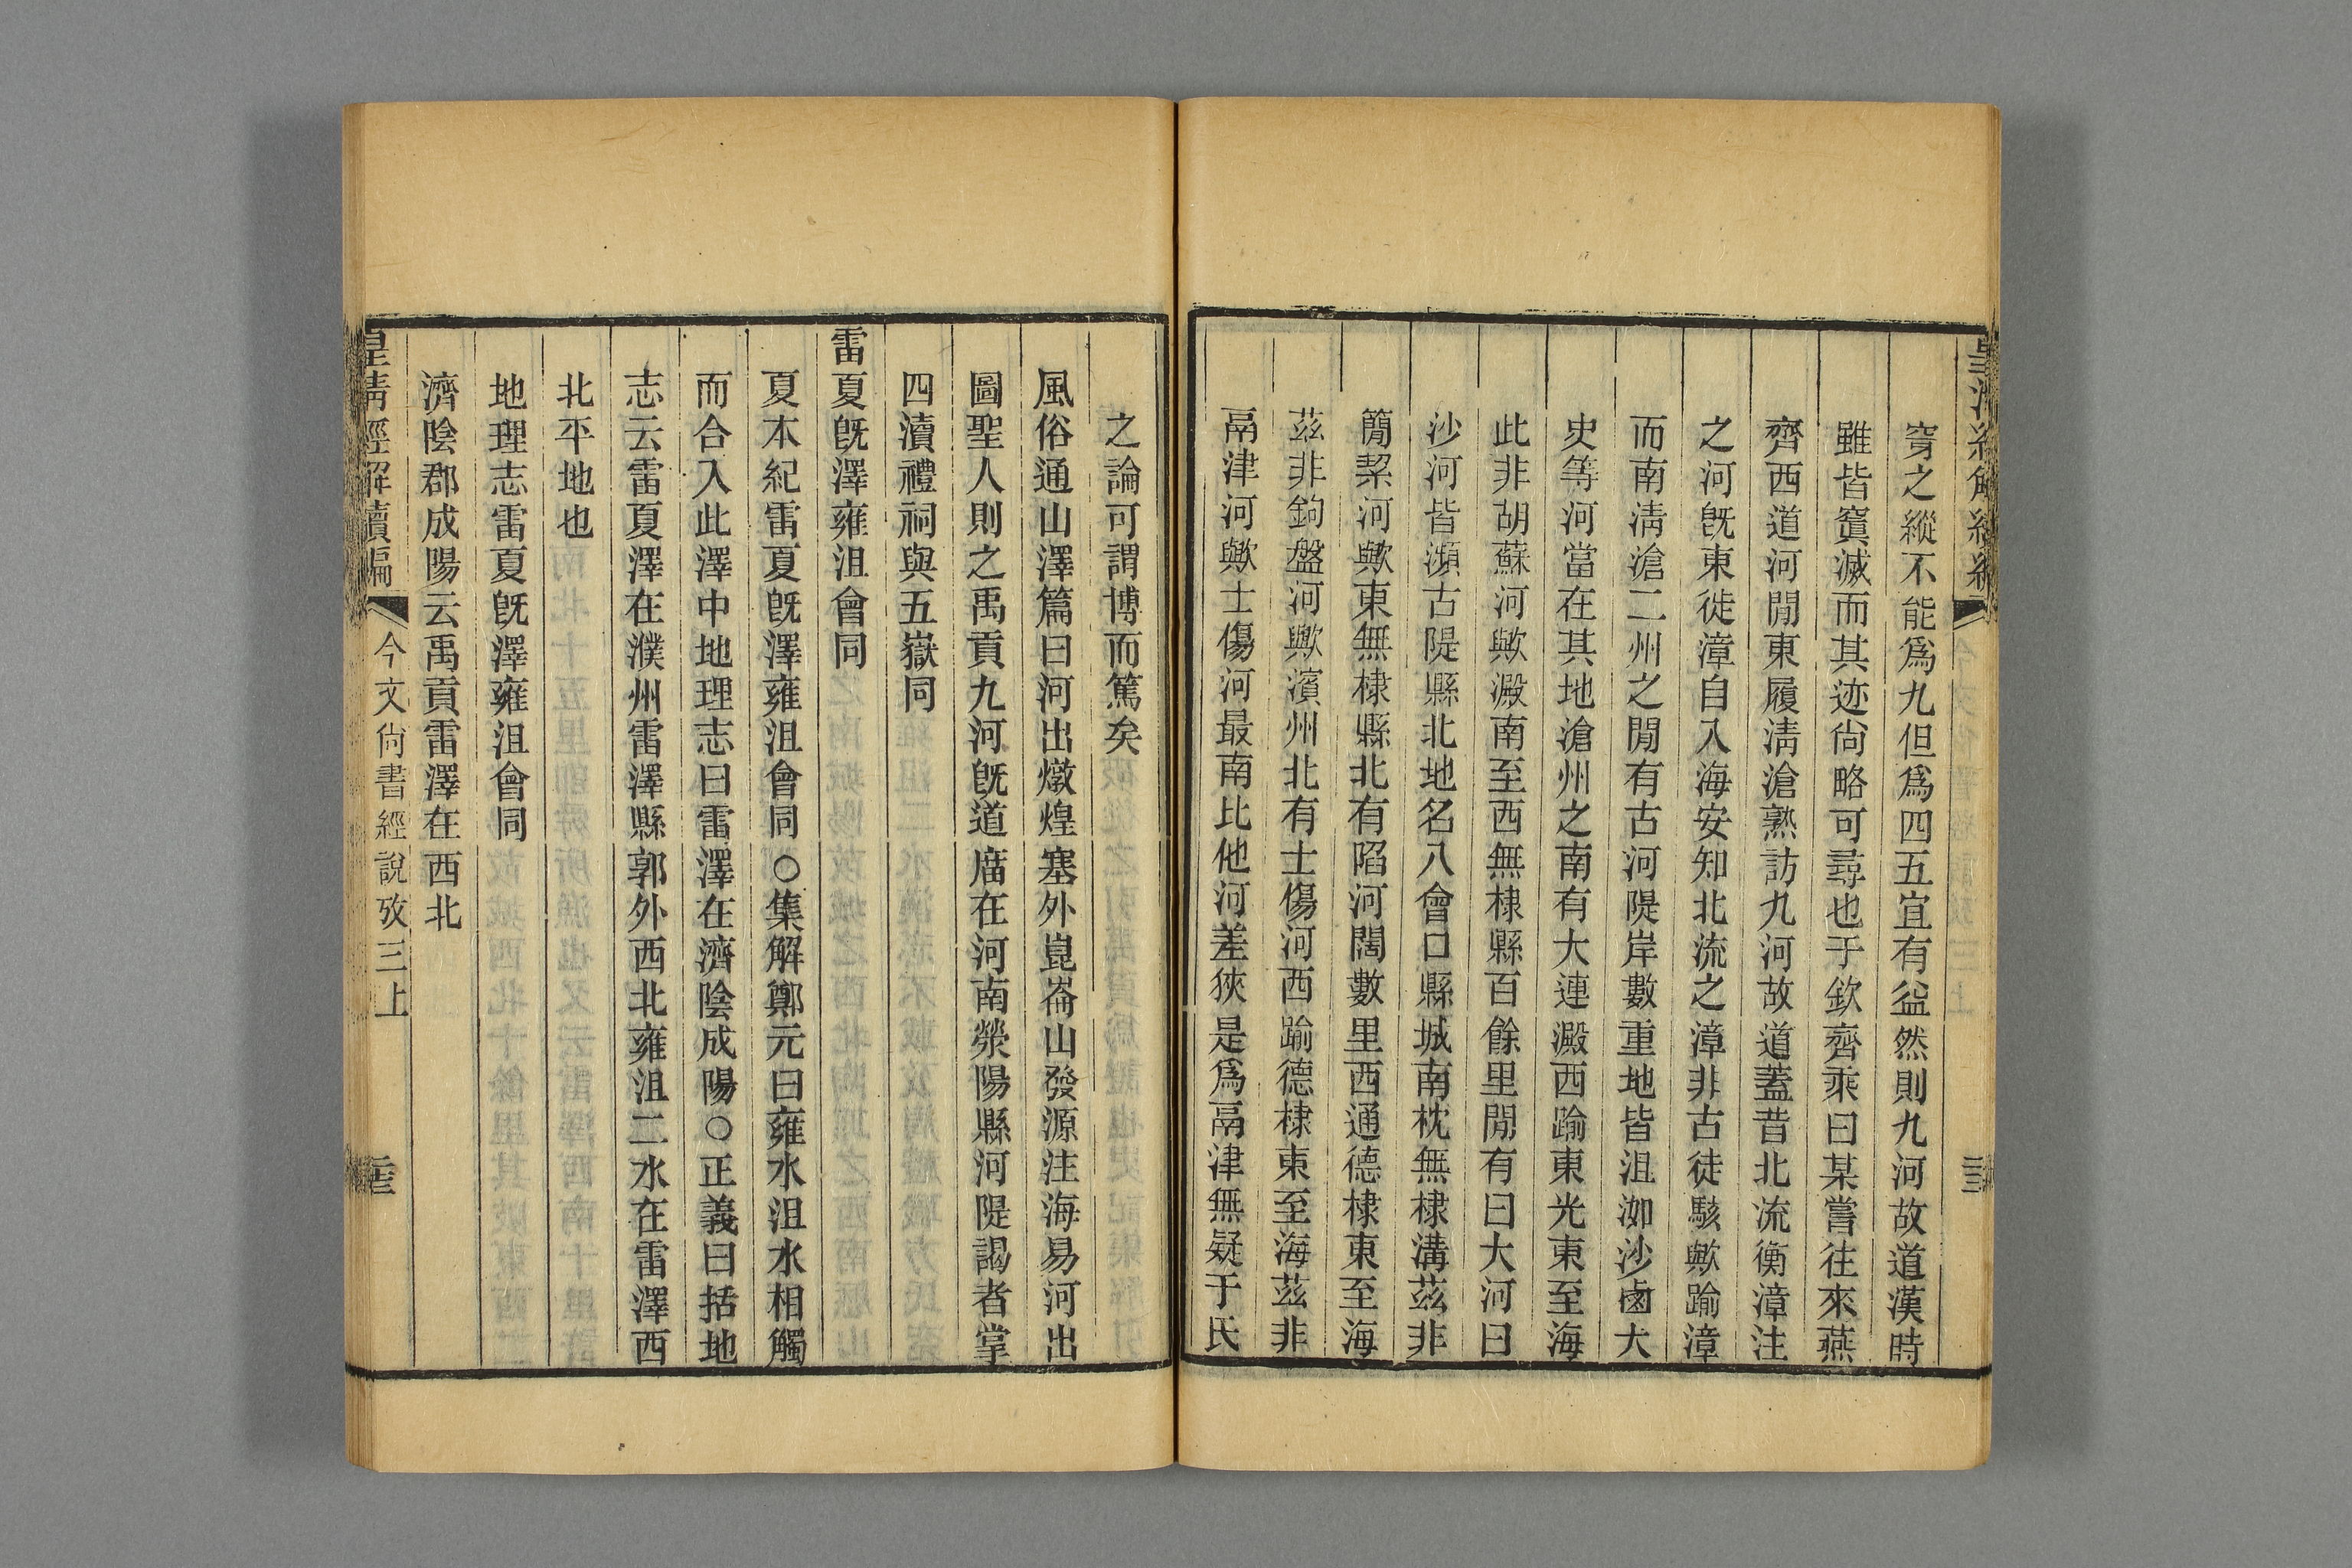 穿之縱不能爲九但爲四五宜有益然則九河故道漢時
雖皆窴滅而其迹尙略可尋也于欽齊乘曰某嘗往來燕
齊西道河閒東履淸滄熟訪九河故道蓋昔北流衡漳注
之河旣東徙漳自入海安知北流之漳非古徒駭歟踰漳
而南淸滄二州之閒有古河隄岸數重地皆沮洳沙鹵大
史等河當在其地滄州之南有大連澱西踰東光東至海
此非胡蘇河歟澱南至西無棣縣百餘里閒有曰大河曰
沙河皆瀕古隄縣北地名八會口縣城南枕無棣溝茲非
簡絜河歟東無棣縣北有陷河闊數里西通德棣東至海
茲非鉤盤河歟濱州北有士傷河西踰德棣東至海茲非
鬲津河歟士傷河最南比他河差狹是爲鬲津無疑于氏
之論可謂博而篤矣
風俗通山澤篇曰河出燉煌塞外崑崙山發源注海易河出
圖聖人則之禹貢九河旣道廟在河南滎陽縣河隄謁者掌
四瀆禮祠與五嶽同
雷夏旣澤雍沮會同
夏本紀雷夏旣澤雍沮會同○集解鄭元曰雍水沮水相觸
而合入此澤中地理志曰雷澤在濟陰成陽○正義曰括地
志云雷夏澤在濮州雷澤縣郭外西北雍沮二水在雷澤西
北平地也
地理志雷夏旣澤雍沮會同
濟陰郡成陽云禹貢雷澤在西北
皇淸經解續編
今文尙書經說攷三上